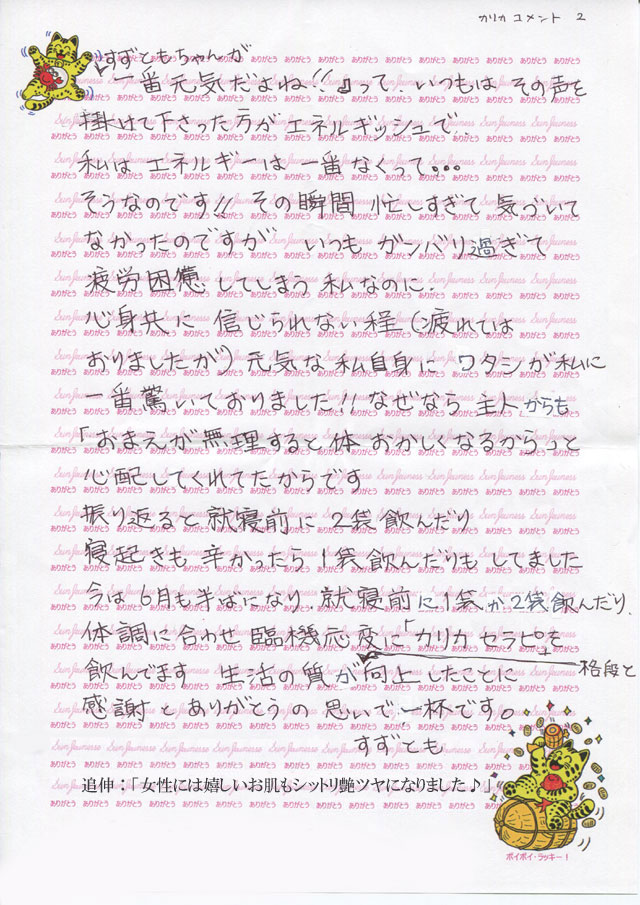 カリカ コメント 2
『すずともちゃんが
一番元気だよね!!』って、いつもは その声を
掛けて下さった方が エネルギッシュで、
私は エネルギーは 一番 なくって・・・
そうなのです!! その瞬間 忙しすぎて 気づいて
なかったのですが いつも ガンバリ過ぎて
疲労困憊 してしまう 私なのに、
心身共に 信じられない程 (疲れては
おりましたが) 元気な 私自身に ワタシが 私に
一番 驚いて おりました!! なぜなら 主人からも
「おまえが 無理すると 体 おかしくなるから」と
心配してくれてたからです
振り返ると 就寝前に 2袋 飲んだり
寝起きも 辛かったら 1袋 飲んだりも してました
今は 6月も 半ばになり、就寝前に 1袋 か 2袋 飲んだり、
体調に合わせ 臨機応変に 「カリカ セラピ」を
飲んでます 生活の質が 格段と 向上したことに
感謝と ありがとうの 思いで 一杯です。
すずとも
追伸:「女性には嬉しいお肌もシットリ艶ツヤになりました♪」
ポイポイ・ラッキー!
Sun Jeunesse
ありがとう